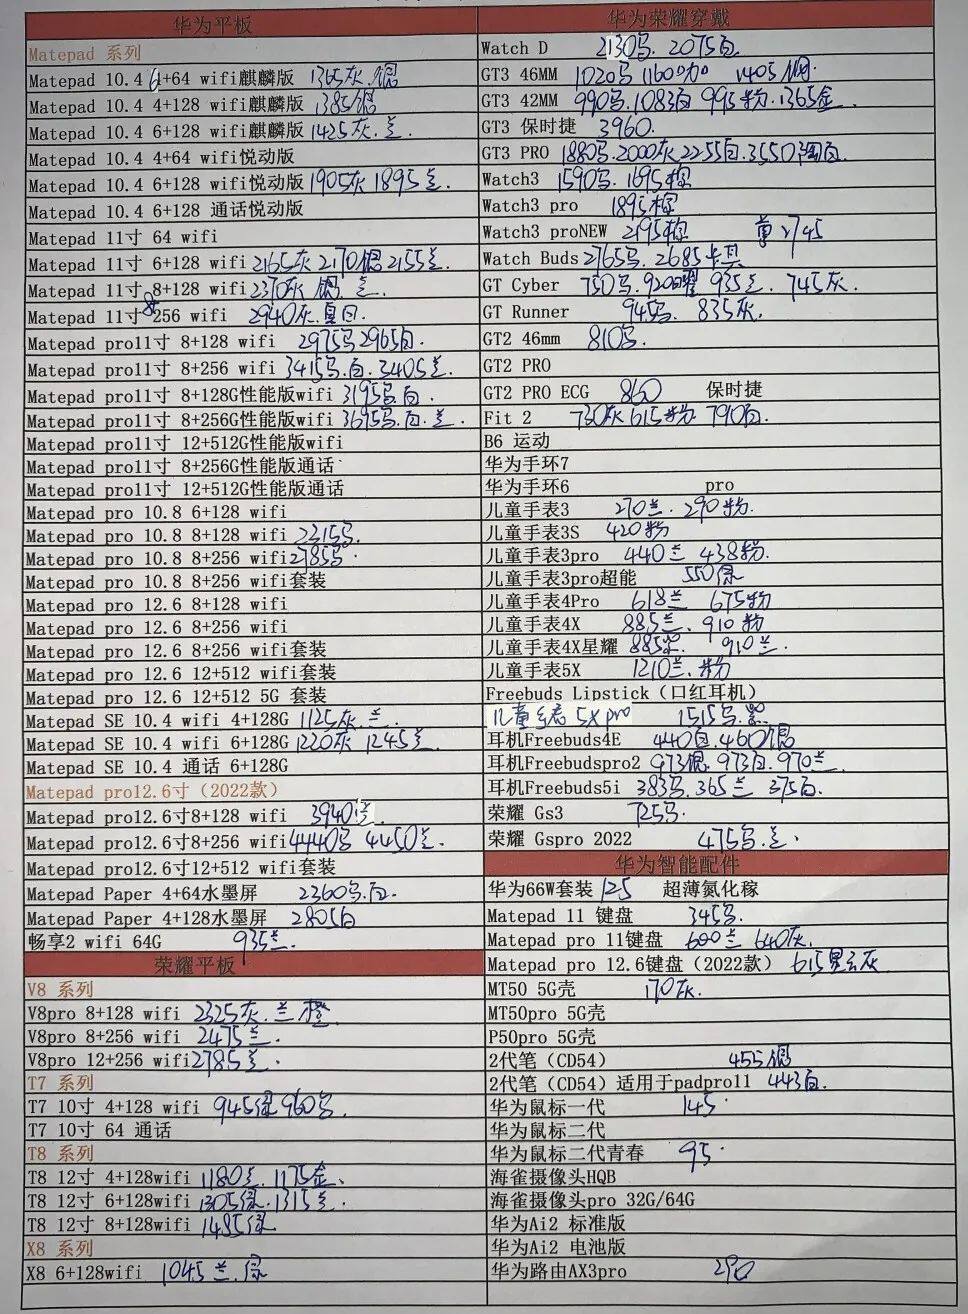 华为平板
Matepad 系列
Matepad 10.4 6+64 wifi麒麟版 1365灰.银
Matepad 10.4 4+128 wifi麒麟版 1385银
Matepad 10.4 6+128 wifi麒麟版 1425灰.兰
Matepad 10.4 4+64 wifi悦动版
Matepad 10.4 6+128 wifi悦动版 1905灰 1895兰.
Matepad 10.4 6+128 通话悦动版
Matepad 11寸 64 wifi
Matepad 11寸 6+128 wifi 2165灰 2170银 2155兰
Matepad 11寸 8+128 wifi 2370灰 银.兰.
Matepad 11寸 8+256 wifi 2940灰.夏日.
Matepad pro11寸 8+128 wifi 2975乌 2965白.
Matepad pro11寸 8+256 wifi 3415乌.白.3405兰.
Matepad pro11寸 8+128G性能版wifi 3195乌.白.
Matepad pro11寸 8+256G性能版wifi 3695乌.白.兰.
Matepad pro11寸 12+512G性能版wifi
Matepad pro11寸 8+256G性能版通话
Matepad pro11寸 12+512G性能版通话
Matepad pro 10.8 6+128 wifi
Matepad pro 10.8 8+128 wifi 2315乌.
Matepad pro 10.8 8+256 wifi 2785乌.
Matepad pro 10.8 8+256 wifi套装
Matepad pro 12.6 8+128 wifi
Matepad pro 12.6 8+256 wifi
Matepad pro 12.6 8+256 wifi套装
Matepad pro 12.6 12+512 wifi套装
Matepad pro 12.6 12+512 5G 套装
Matepad SE 10.4 wifi 4+128G 1125灰.兰.
Matepad SE 10.4 wifi 6+128G 1220灰 1245兰.
Matepad SE 10.4 通话 6+128G
Matepad pro12.6寸（2022款）
Matepad pro12.6寸8+128 wifi 3940兰.
Matepad pro12.6寸8+256 wifi 4440乌 4450兰.
Matepad pro12.6寸12+512 wifi套装
Matepad Paper 4+64水墨屏 2360乌.白.
Matepad Paper 4+128水墨屏 2805白
畅享2 wifi 64G 935兰.
荣耀平板
V8 系列
V8pro 8+128 wifi 2325灰.兰.橙
V8pro 8+256 wifi 2475兰.
V8pro 12+256 wifi 2785兰.
T7 系列
T7 10寸 4+128 wifi 945绿 960乌.
T7 10寸 64 通话
T8 系列
T8 12寸 4+128wifi 1180兰.1175金.
T8 12寸 6+128wifi 1305绿.1315兰.
T8 12寸 8+128wifi 1485绿
X8 系列
X8 6+128wifi 1045兰.绿
华为荣耀穿戴
Watch D 2130乌. 2075白.
GT3 46MM 1020乌 1160咖 1405钢.
GT3 42MM 990乌.1083白 995粉.1365金.
GT3 保时捷 3960.
GT3 PRO 1880乌.2000灰 2255白.3550陶白.
Watch3 1590乌. 1695棕
Watch3 pro 1895棕
Watch3 proNEW 2195棕 2745
Watch Buds 2765乌. 2685卡其
GT Cyber 750乌.920曜 935兰. 745灰.
GT Runner 945乌. 835灰.
GT2 46mm 810乌.
GT2 PRO
GT2 PRO ECG 860 保时捷
Fit 2 730灰 615粉 790白.
B6 运动
华为手环7
华为手环6 pro
儿童手表3 270兰. 290粉.
儿童手表3S 420粉
儿童手表3pro 440兰 438粉.
儿童手表3pro超能 550绿
儿童手表4Pro 618兰 675粉
儿童手表4X 885兰. 910粉
儿童手表4X星耀 885 910兰.
儿童手表5X 1210兰.粉
Freebuds Lipstick（口红耳机）
儿童手表 5X pro 1515乌.
耳机Freebuds4E 440白.460银
耳机Freebudspro2 973银 973白.970兰.
耳机Freebuds5i 383乌.365兰 375白.
荣耀 Gs3 725乌.
荣耀 Gspro 2022 475乌.兰.
华为智能配件
华为66W套装 125 超薄氮化稼
Matepad 11 键盘 345乌.
Matepad pro 11键盘 600兰 640灰.
Matepad pro 12.6键盘（2022款） 615 灰
MT50 5G壳 170灰.
MT50pro 5G壳
P50pro 5G壳
2代笔（CD54） 455银
2代笔（CD54）适用于padpro11 443白.
华为鼠标一代 145.
华为鼠标二代
华为鼠标二代青春 95.
海雀摄像头HQB
海雀摄像头pro 32G/64G
华为Ai2 标准版
华为Ai2 电池版
华为路由AX3pro 290